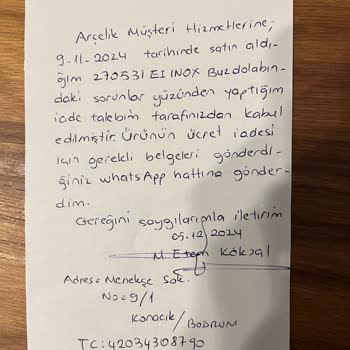 Arçelik Müşteri Hizmetlerine;
9-11-2024 tarihinde satın aldı-
ğım 270531 EI INOX Buzdolabın-
daki sorunlar yüzünden yaptığım
iade talebim tarafınızdan kabul
edilmiştir. Ürünün ücret iadesi
için gerekli belgeleri gönderdi-
ğiniz whatsApp hattına gönder-
dim.
Gereğini saygılarımla iletirim
05.12.2024
M. Etem Köksal
Adres: Menekşe Sok.
No: 9/1
Konacık / BODRUM
TC: 42034308790